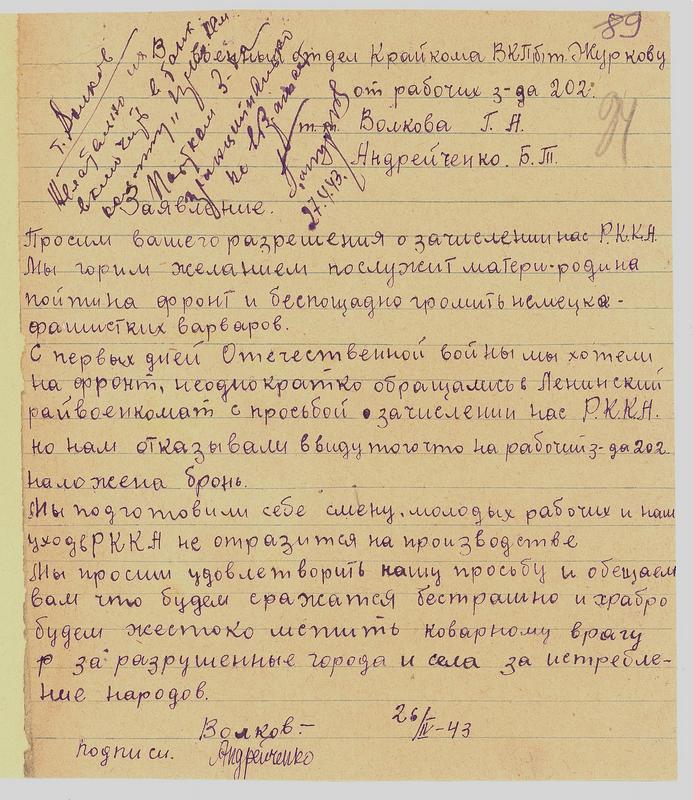 89
Военный отдел Крайкома ВКПб т. Журкову
от рабочих з-да 202.
94
т.т. Волкова Г. А.
Андрейченко. Б. Т.
т. Волков
Желательно их
включить в
27.4.43.
Заявление.
Просим вашего разрешения о зачислении нас Р.К.К.А.
Мы горим желанием послужит матери-родина
пойти на фронт и беспощадно громить немецка-
фашистких варваров.
С первых дней Отечественной войны мы хотели
на фронт, неоднократко обращались в Ленинский
райвоенкомат с просьбой о зачислении нас Р.К.К.А.
но нам отказывали ввиду того что на рабочий з-да 202.
наложена бронь.
Мы подготовили себе смену, молодых рабочих и наш
уход в РККА не отразится на производстве
Мы просим удовлетворить нашу просьбу и обещаем
вам что будем сражатся бестрашно и храбро
будем жестоко мстить коварному врагу
за разрушенные города и села за истребле-
ние народов.
Волков.-
26/IV-43
подписи. Андрейченко